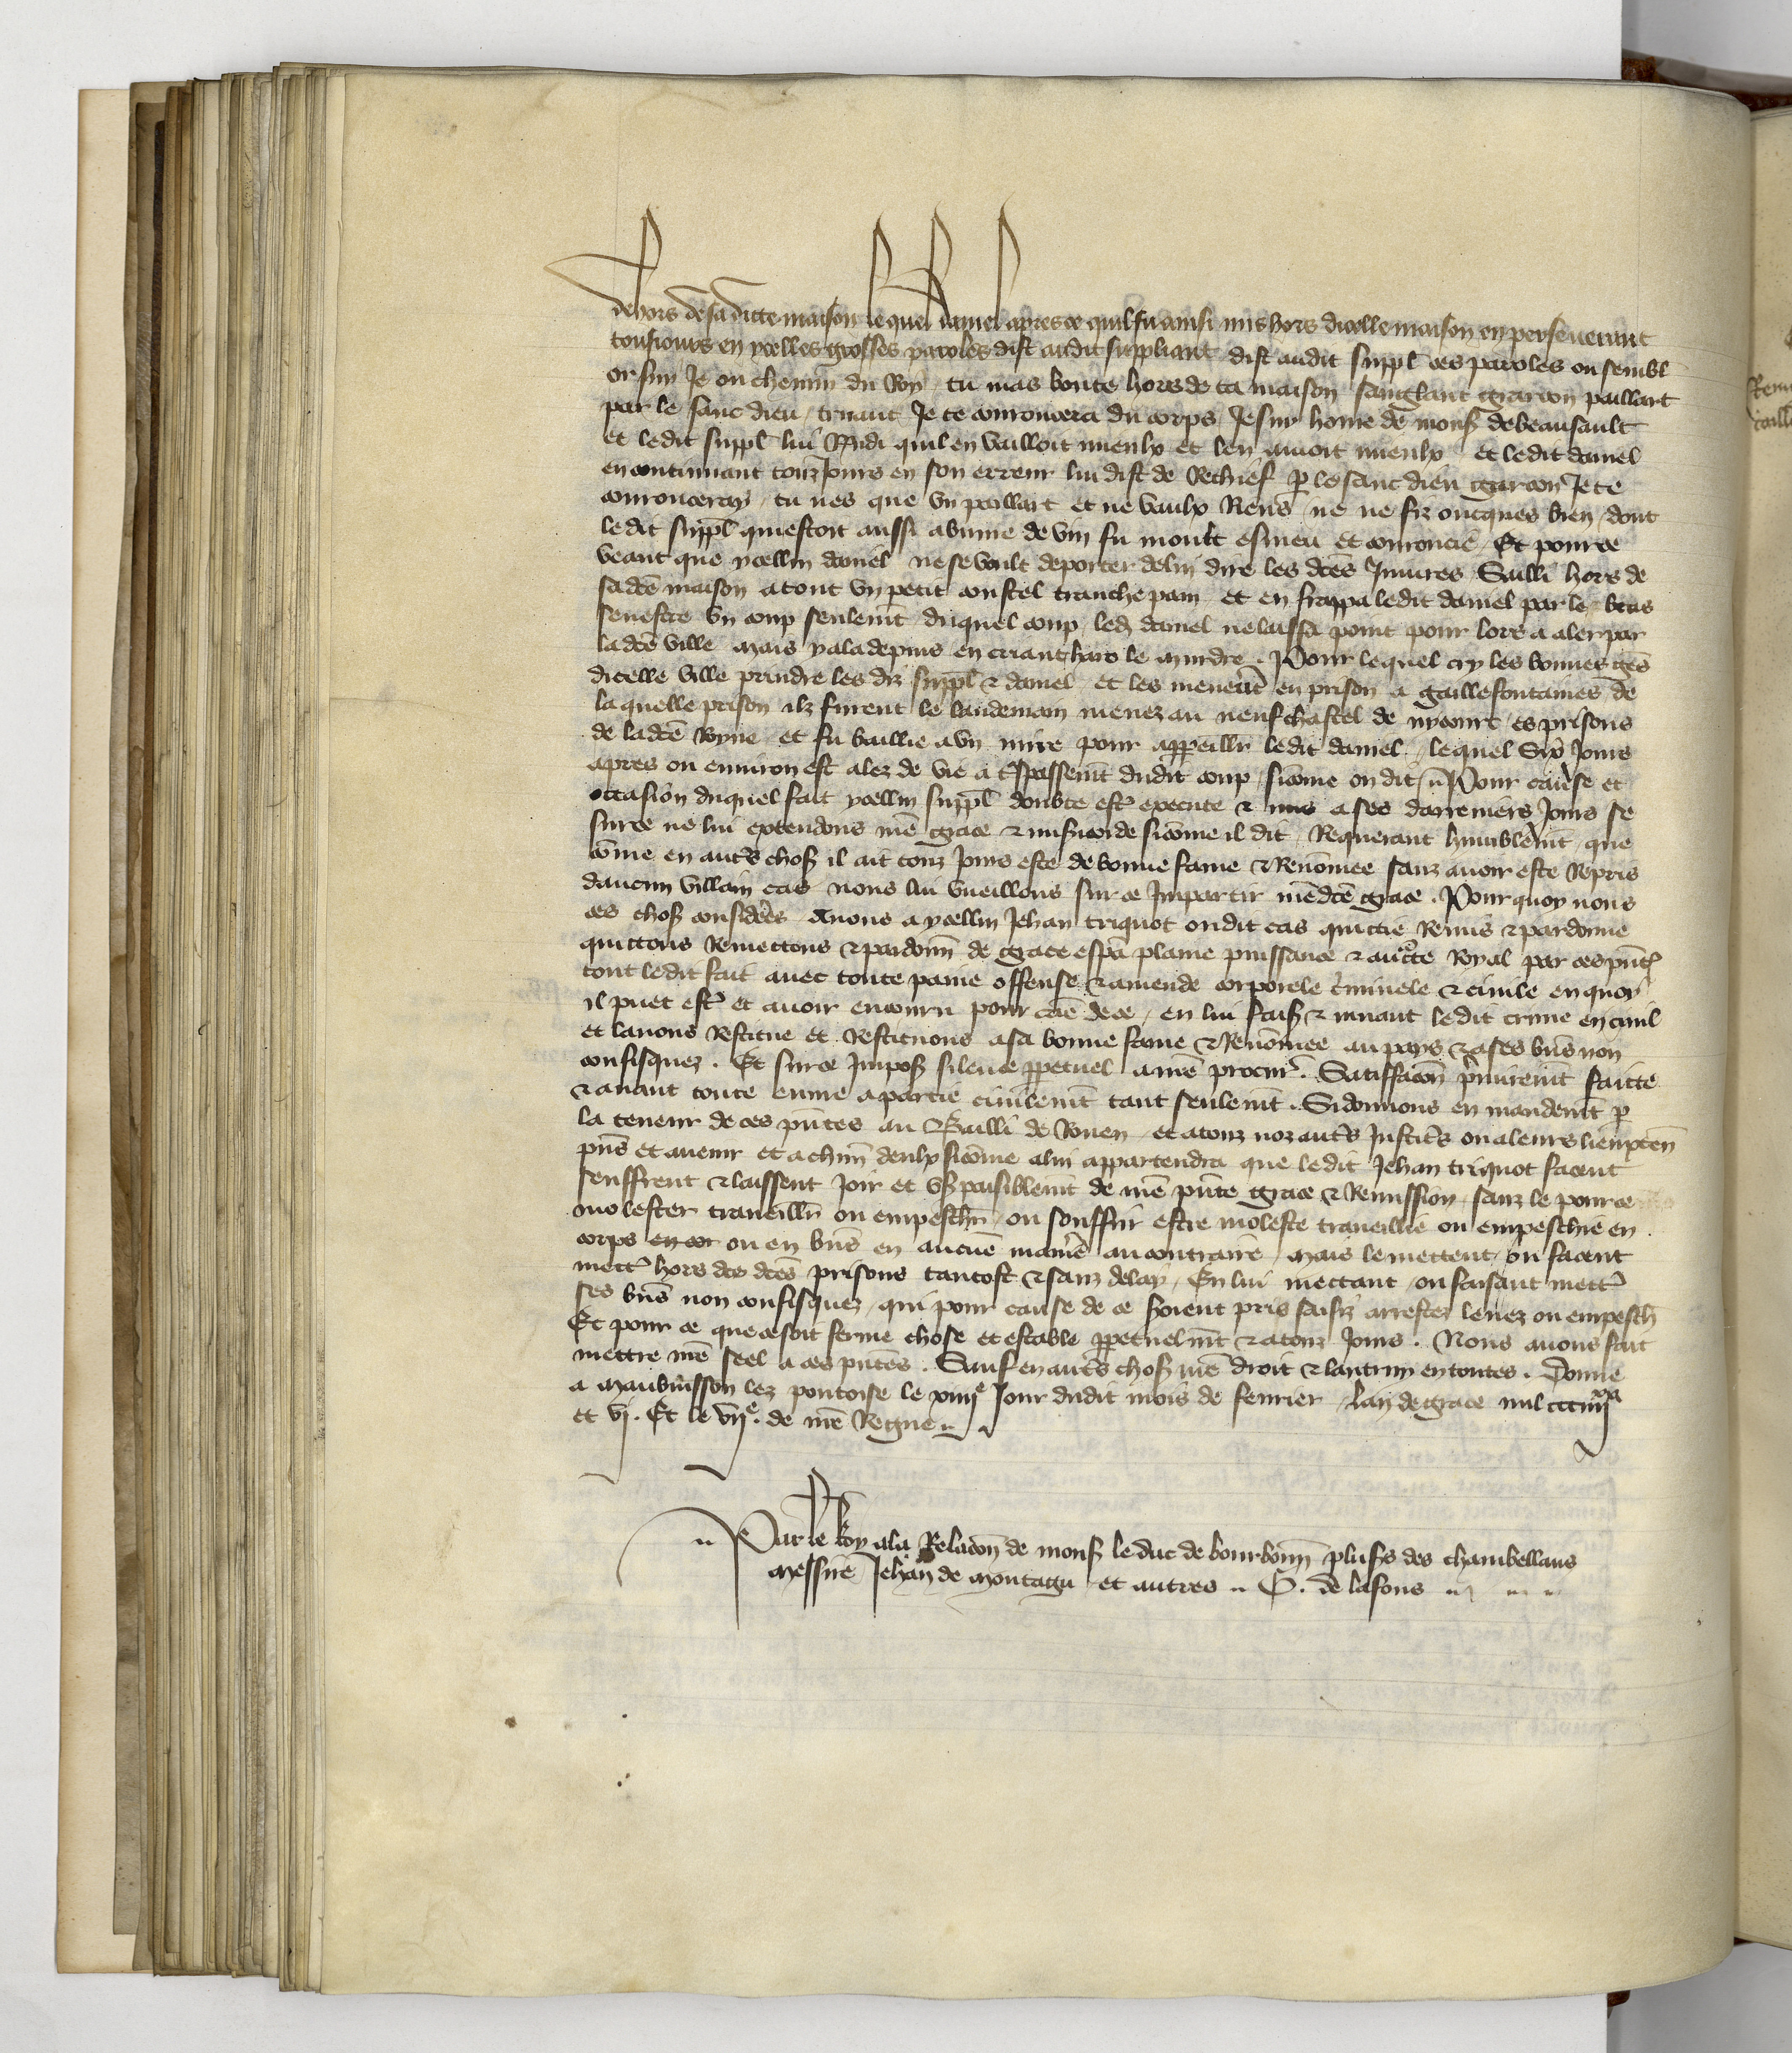 dehors de sa dicte maison lequel daniel apres ce quil fu ainsi mis hors dicelle maison en perseuerant
tousiours en ycelles grosses paroles dist audit suppliant dist audit suppl ces paroles ou sembl
or suy Je ou chemin du Roy tu mas boute hors de ta maison sanglant garcon paillart
par le sanc dieu truant Je te courroucera du corps Je suy home de mons de beausault
et ledit suppl lui Rndi quil en vailloit mieulx et len amoit mieulx et ledit daniel
en continuant touz Jours en son erreur lui dist de Rechief p le sanc dieu garcon Je te
courrouceray tu nes que vn paillart et ne vaulx Riens ne ne fiz oncques bien dont
ledit suppl qui estoit aussi abuure de vin fu moult esmeu et courroucie Et pour ce
veant que ycellui daniel ne se voult deporter de lui dire les dces Iniures Sailli hors de
sadce maison a tout vn petit coustel tranche pain et en frappa ledit daniel par le bras
senestre vn coup seulemt duquel coup led daniel ne laissa point pour lors a aler par
ladce ville mais yala depuis en criant haro le murdre . Pour lequel cry les bonnes ges
dicelle ville prindre les diz suppl & daniel et les menerēt en prison a gaillefontaines de
laquelle prison ilz furent le landemain menez au neufchastel de nycourt es prisons
de ladce Royne et fu baillie a vn mire pour appeillr ledit daniel lequel Six Jours
apres ou enuiron est alez de vie a tspassemt dudit coup sicome on dit Pour cause et
occasion duquel fait ycellui suppl doubte estr execute & mis a ses darreniers Jours se
sur ce ne lui extendons nre grace & misicorde sicome il dit Requerant humblemt que
come en autrs chos il ait touz Jours este de bonne fame & Renomee sanz auoir este Repris
daucun villain cas nous lui vueillons sur ce Impartir nredce grace . Pour quoy nous
ces chos considerees Auons a ycellui Jehan triquot ou dit cas quittie Remis & pardonne
quittons Remettons & pardonn de grace espa plaine puissance & aucte Royal par ces pntes
tout ledit fait auec toute paine offense & amende corporele criminele & ciuile en quoy
il puet estr et auoir encouru pour cause de ce en lui fais & muant ledit crime en ciuil
et lauons Restitue et Restituons a sa bonne fame & Renomee au pays & a ses bns non
confisquez . Et sur ce Impos silence ppetuel a nre procur . Satiffacon pmieremt faitte
& auant toute euure a partie ciuilemt tant seulemt . Si donnons en mandemt p
la teneur de ces pntes au Bailli de Rouen et a touz noz autrs Justiciers ou a leurs lieuxten
pns et auenir et a chun deulx sicome a lui appartendra que ledit Jehan triquot facent
seuffrent & laissent Joir et vs paisiblemt de nre pnte grace & Remission sanz le pour ce
molester traueillr ou empeschr ou souffrir estre moleste traueillie ou empeschie en
corps en cor ou en bns en aucune maniere au contraire Mais le mettent ou facent
mettr hors des dces prisons tantost & sanz delay En lui mettant ou faisant mettr
ses bns non confisquez qui pour cause de ce seroient pris saisiz arrestez leuez ou empesch
Et pour ce que ce soit ferme chose et estable ppetuelmt & a touz Jours . Nous auons fait
mettre nre seel a ces pntes . Sauf en autrs chos nre droit & lautruy en toutes . Donne
a Maubuisson lez pontoise le xiiiie Jour dudit mois de feurier Lan de grace mil ccciiiixx
et vj . Et le vije . de nre Regne
Par le Roy a la Relacon de mons le duc de bourbonn plusrs des chambellans
Messire Jehan de Montagu et autres G . de lafons